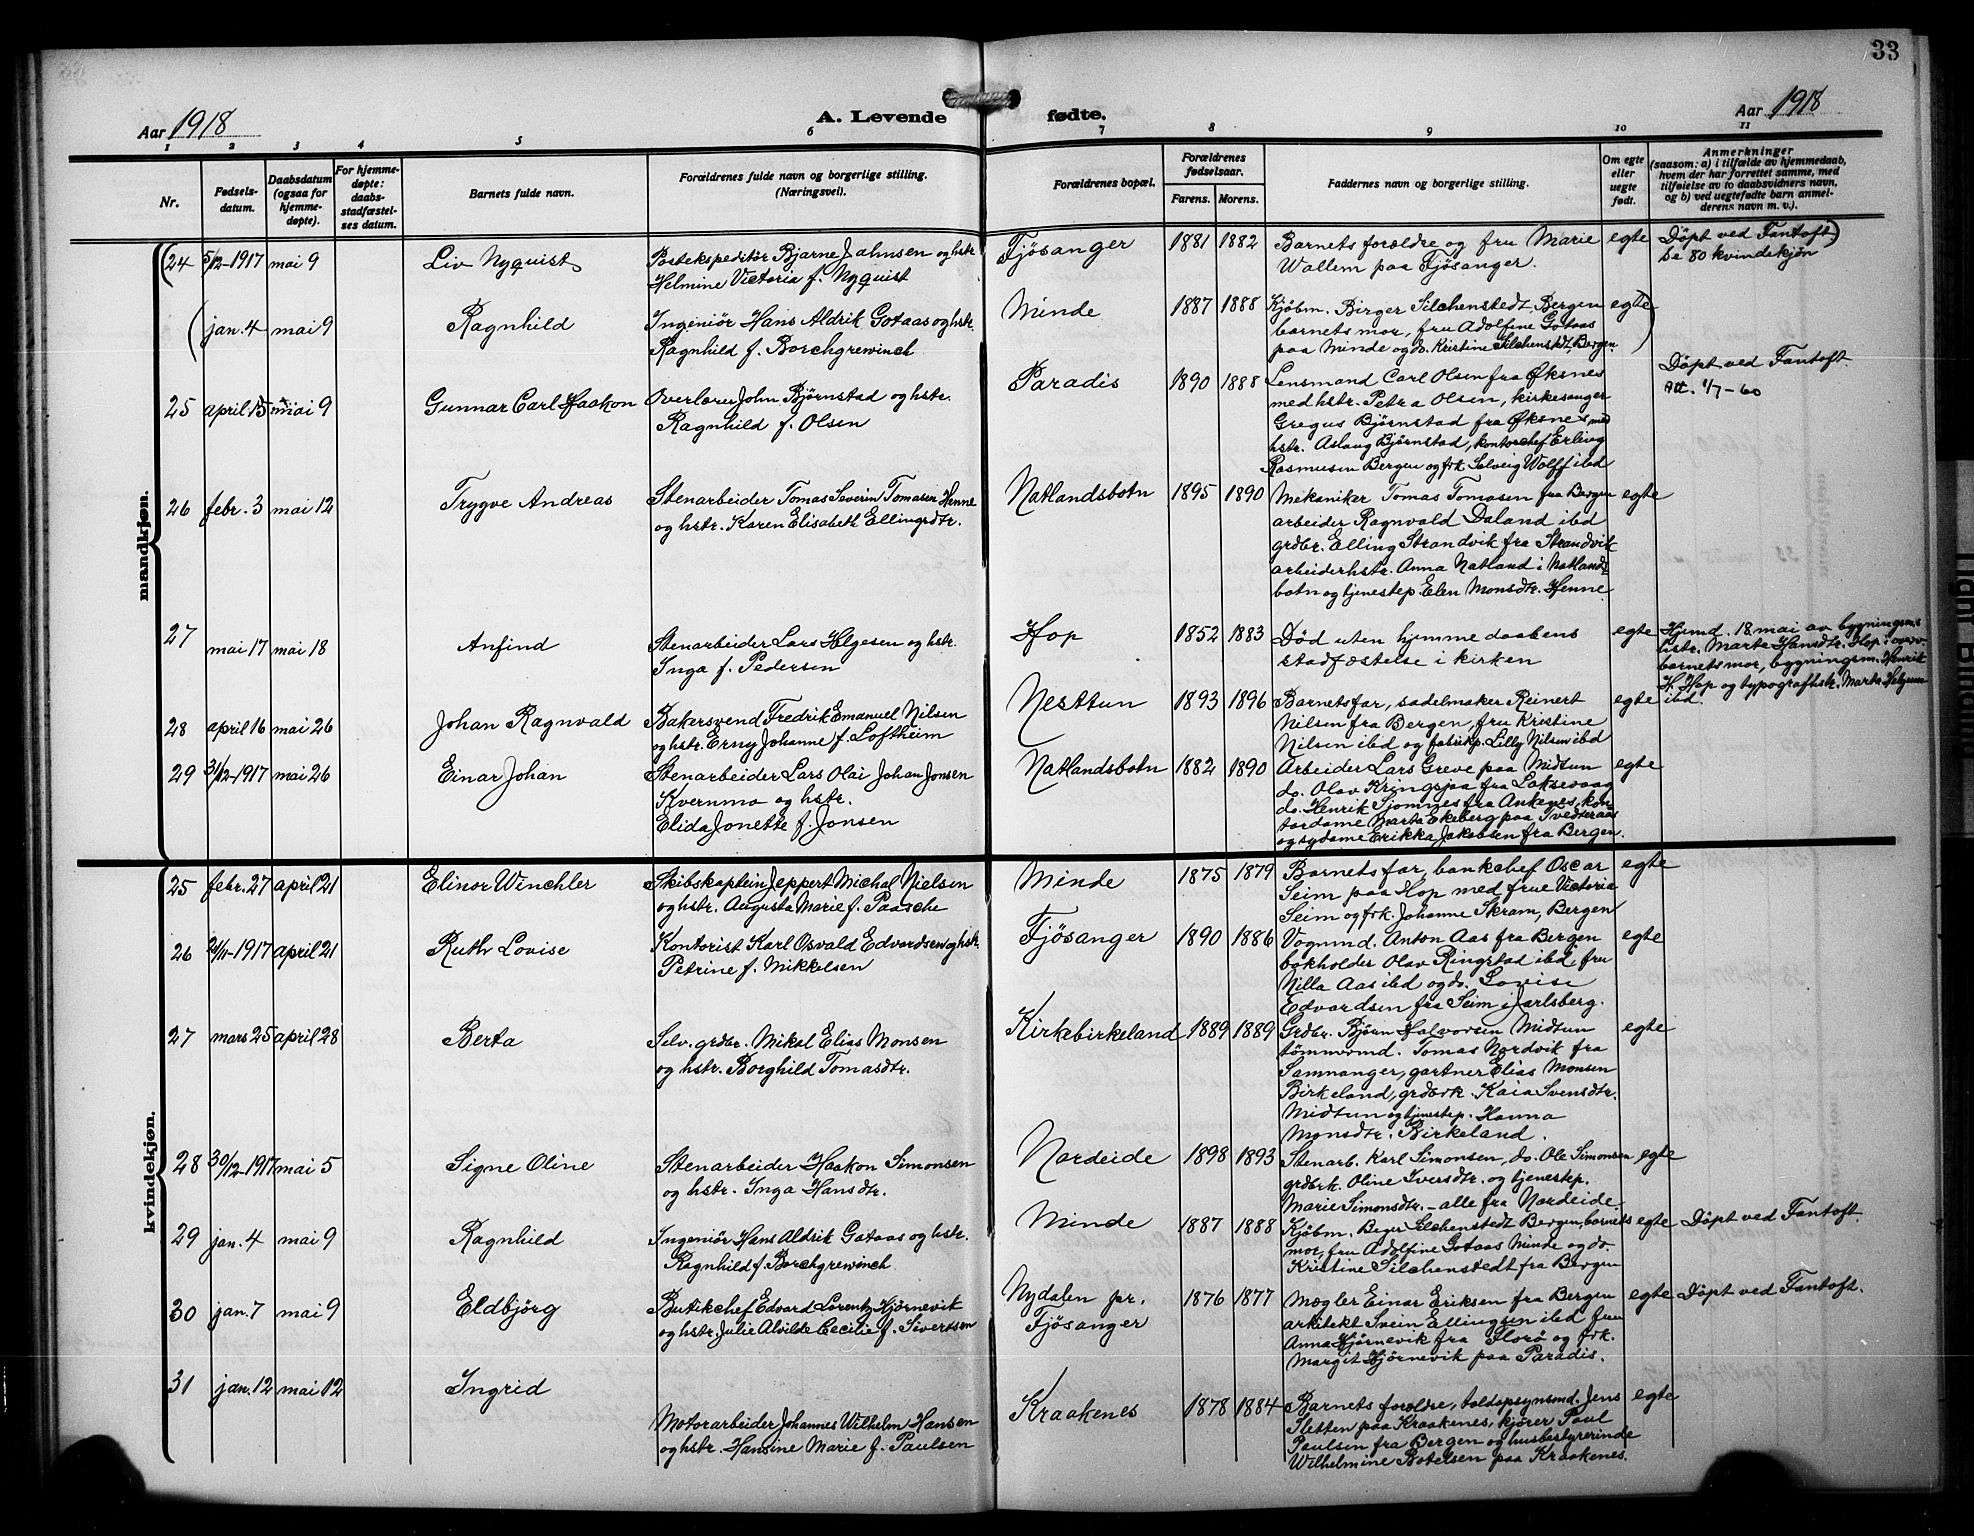 33
Aar 1918
A. Levende fødte.
Aar 1918
1 2 3 4 5 6 7 8 9 10 11
Nr.
Fødsels-
datum.
Daabsdatum
(ogsaa for
hjemme-
døpte).
For hjemme-
døpte:
daabs-
stadfæstel-
ses datum.
Barnets fulde navn.
Forældrenes fulde navn og borgerlige stilling.
(Næringsvei).
Forældrenes bopæl.
Forældrenes
fødselsaar.
Farens. Morens.
Faddernes navn og borgerlige stilling.
Om egte
eller
uegte
født.
Anmerkninger
(saasom: a) i tilfælde av hjemmedaab,
hvem der har forrettet samme, med
tilføielse av to daabsvidners navn,
og b) ved uegtefødte barn anmel-
derens navn m. v.).
mandkjøn.
(24 5/12-1917 mai 9 Liv Nyquist
Postekspeditör Bjarne Jahnsen og hstr
Helmine Victoria f. Nyquist
Fjösanger 1881 1882
Barnets forældre og fru Marie
Wallem paa Fjösanger.
egte
Döpt ved Fantoft)
Se 80 kvindekjön
( jan. 4 mai 9 Ragnhild
Ingeniör Hans Aldrik Gotaas og hstr.
Ragnhild f. Borchgrewinch
Minde 1887 1888
Kjöbm. Birger Silchenstedt, Bergen
barnets mor, fru Adolfine Gotaas
paa Minde og do. Kristine Silchenstedt, Bergen.
egte )
25 april 15 mai 9 Gunnar Carl Haakon
Overlærer John Bjørnstad og hstr.
Ragnhild f. Olsen
Paradis 1890 1888
Lensmand Carl Olsen fra Øksnes
med hstr. Petra Olsen, kirkesanger
Gregus Bjørnstad fra Øksnes med
hstr. Aslaug Bjørnstad, kontorchef Erling
Rasmusen Bergen og frk Solveig Wolff ibd
Döpt ved Fantoft.
Att. 1/7-60
26 febr. 3 mai 12 Trygve Andreas
Stenarbeider Tomas Severin Tomasen Henne
og hstr. Karen Elisabeth Ellingsdtr.
Natlandsbotn 1895 1890
Mekaniker Tomas Tomasen fra Bergen
arbeider Ragnvald Daland ibd
grdbr. Elling Strandvik fra Strandvik
arbeiderhstr. Anna Natland i Natlands-
botn og tjenestep. Elen Monsdtr. Henne
egte
27 mai 17 mai 18 Anfind
Stenarbeider Lars Helgesen og hstr.
Inga f. Pedersen
Hop 1852 1883
Död uten hjemmedaabens
stadfæstelse i kirken
egte
Hjemd. 18 mai av bygningsms
hstr. Marta Hansdtr. Hop i overv.
barnets mor, bygningsm. Henrik
H. Hop og typografhstr. Marta Helgesen
ibd.
28 april 16 mai 26 Johan Ragnvald
Bakersvend Fredrik Emanuel Nilsen
og hstr. Erny Johanne f. Loftheim
Nesttun 1893 1896
Barnets far, sadelmaker Reinert
Nilsen fra Bergen, fru Kristine
Nilsen ibd og fabrikp. Lilly Nilsen ibd
egte
29 31/12-1917 mai 26 Einar Johan
Stenarbeider Lars Olai Johan Jonsen
Kvernmo og hstr.
Elida Jonette f. Jonsen
Natlandsbotn 1882 1890
Arbeider Lars Greve paa Midtun
do. Olav Kringsjaa fra Laksevaag
do. Henrik Sjomnes fra Ankenes, kon-
tordame Marta Ekeberg paa Tvedteraas
og sydame Erikka Jakobsen fra Bergen.
egte
kvindekjøn.
25 febr. 27 april 21 Elinor Winchler
Skibskaptein Jeppert Michal Nielsen
og hstr. Augusta Marie f. Paasche
Minde 1875 1879
Barnets far, bankchef Oscar
Seim paa Hop med frue Victoria
Seim og frk. Johanne Skram, Bergen
egte
26 21/11-1917 april 21 Ruth Lovise
Kontorist Karl Osvald Edvardsen og hstr.
Petrine f. Mikkelsen
Fjösanger 1890 1886
Vognmd. Anton Aas fra Bergen
bokholder Olav Ringstad ibd, fru
Nilla Aas ibd og do. Lovise
Edvardsen fra Seim i Jarlsberg.
egte
27 mars 25 april 28 Berta
Selv. grdbr. Mikal Elias Monsen
og hstr. Borghild Tomasdtr.
Kirkebirkeland 1889 1889
Grdbr. Bjørn Halvorsen Midtun
tömmermd. Tomas Nordvik fra
Samnanger, gartner Elias Monsen
Birkeland, grdbrk. Kaia Svensdtr.
Midtun og tjenestep. Hanna
Monsdtr. Birkeland.
egte
28 30/12-1917 mai 5 Signe Oline
Stenarbeider Haakon Simonsen
og hstr. Inga Hansdtr.
Nordeide 1898 1893
Stenarb. Karl Simonsen, do. Ole Simonsen
grdbrk. Oline Iversdtr. og tjenestep.
Marie Simonsdtr. - alle fra Nordeide.
egte
29 jan. 4 mai 9 Ragnhild
Ingeniör Hans Aldrik Gotaas og hstr.
Ragnhild f. Borchgrewinch
Minde 1887 1888
Kjöbm. Birger Silchenstedt Bergen, barnets
mor, fru Adolfine Gotaas Minde og do.
Kristine Silchenstedt fra Bergen
egte
Döpt ved Fantoft.
30 jan. 7 mai 9 Eldbjörg
Butikchef Edvard Lorentz Hjörnevik
og hstr. Julie Alvilde Cecilie f. Sivertsen
Nydalen pr.
Fjösanger
1876 1877
Mægler Einar Eriksen fra Bergen
arkitekt Svein Ellingsen ibd fru
Anna Hjörnevik fra Florö og frk.
Margit Hjörnevik paa Paradis.
egte
Döpt ved Fantoft.
31 jan. 12 mai 12 Ingrid
Motorarbeider Johannes Wilhelm Hansen
og hstr. Hansine Marie f. Paulsen
Kraakenes 1878 1884
Barnets forældre, toldopsynsmd. Jens
Sletten paa Kraakenes, kjører Paul
Paulsen fra Bergen og husbestyrerinde
Wilhelmine Botelsen paa Kraakenes.
egte